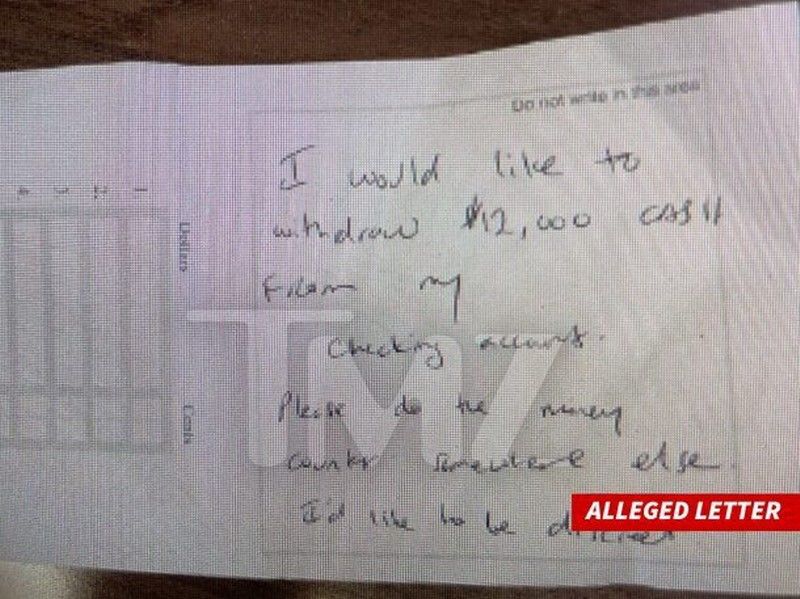 Do not write in this area
I would like to
withdraw $12,000 CASH
From my
Checking account.
Please do the money
counter somewhere else.
I'd like to be
ALLEGED LETTER
TMZ
Dollars
Cents
1
2
3
4